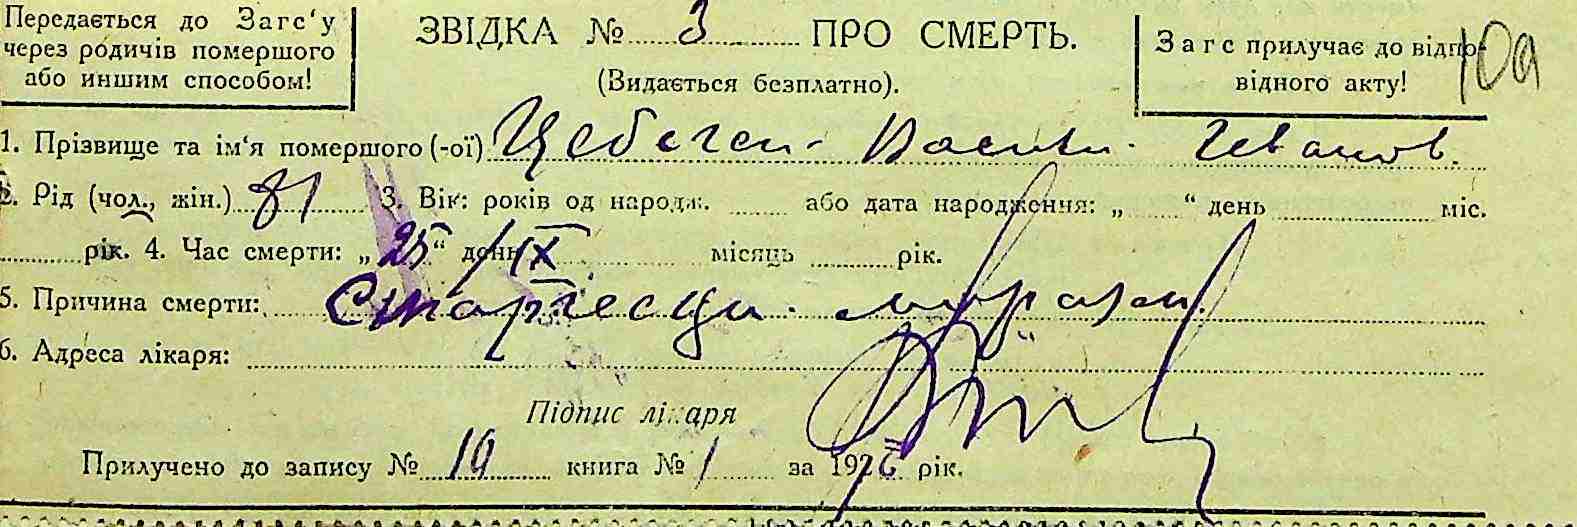 Передається до Загс‘у
через родичів помершого
або иншим способом!
ЗВІДКА № 3 ПРО СМЕРТЬ.
(Видається безплатно).
Загс прилучає до відпо-
відного акту!
1. Прізвище та ім‘я помершого (-ої) Иванов.
2. Рід (чол., жін.) 81 3. Вік: років од народж. або дата народження: „ “ день міс.
рік. 4. Час смерти: „25“ день /IX місяць рік.
5. Причина смерти:
6. Адреса лікаря:
Підпис лікаря
Прилучено до запису № 10 книга № 1 за 1926 рік.